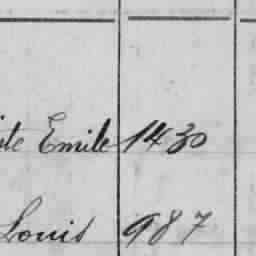 Emile 1430
Louis 987